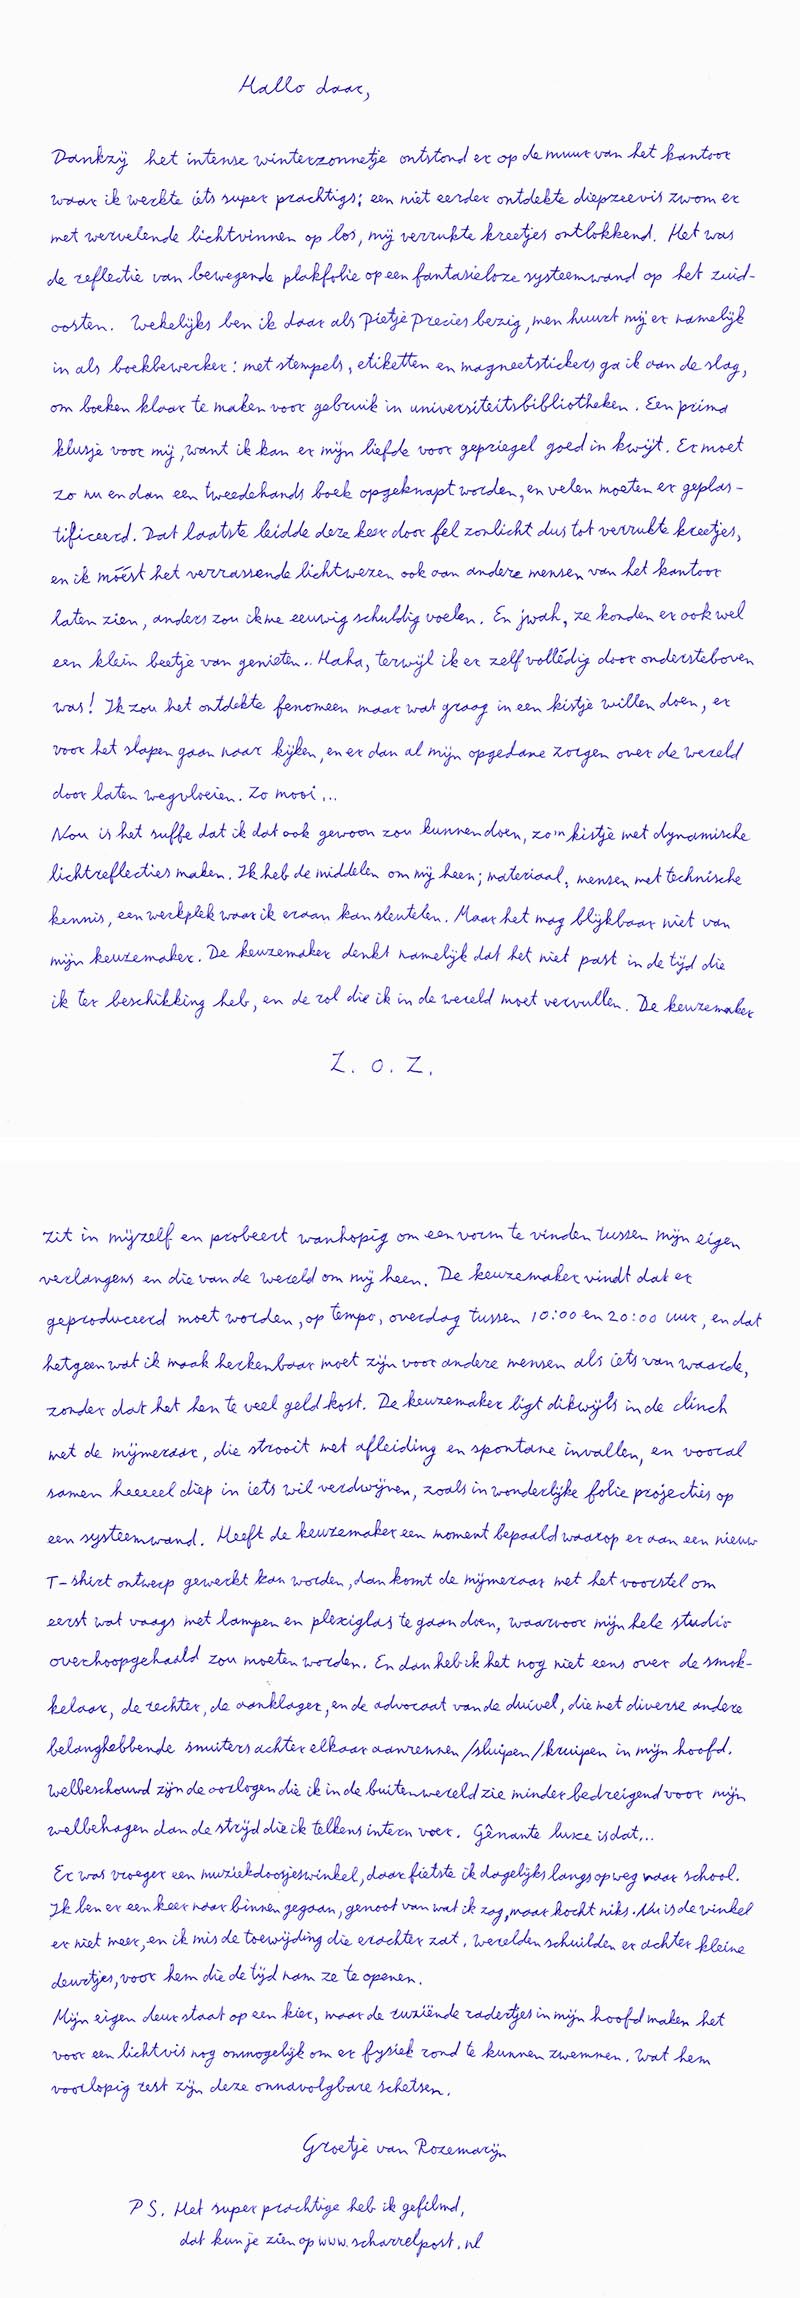 Hallo daar,
Dankzij het intense winterzonnetje ontstond er op de muur van het kantoor
waar ik werkte iets super prachtigs; een niet eerder ontdekte diepzeevis zwom er
met wervelende lichtvinnen op los, mij verrukte kreetjes ontlokkend. Het was
de reflectie van bewegende plakfolie op een fantasieloze systeemwand op het zuid-
oosten. Wekelijks ben ik daar als Pietje Precies bezig, men huurt mij er namelijk
in als boekbewerker: met stempels, etiketten en magneetstickers ga ik aan de slag,
om boeken klaar te maken voor gebruik in universiteitsbibliotheken. Een prima
klusje voor mij, want ik kan er mijn liefde voor gepriegel goed in kwijt. Er moet
zo nu en dan een tweedehands boek opgeknapt worden, en velen moeten er geplas-
tificeerd. Dat laatste leidde deze keer door fel zonlicht dus tot verrukte kreetjes,
en ik móést het verrassende lichtwezen ook aan andere mensen van het kantoor
laten zien, anders zou ik me eeuwig schuldig voelen. En jwah, ze konden er ook wel
een klein beetje van genieten.. Haha, terwijl ik er zelf vollédig door ondersteboven
was! Ik zou het ontdekte fenomeen maar wat graag in een kistje willen doen, er
voor het slapen gaan naar kijken, en er dan al mijn opgedane zorgen over de wereld
door laten wegvloeien. Zo mooi...
Nou is het suffe dat ik dat ook gewoon zou kunnen doen, zo'n kistje met dynamische
lichtreflecties maken. Ik heb de middelen om mij heen; materiaal, mensen met technische
kennis, een werkplek waar ik eraan kan sleutelen. Maar het mag blijkbaar niet van
mijn keuzemaker. De keuzemaker denkt namelijk dat het niet past in de tijd die
ik ter beschikking heb, en de rol die ik in de wereld moet vervullen. De keuzemaker
Z.O.Z.
zit in mijzelf en probeert wanhopig om een vorm te vinden tussen mijn eigen
verlangens en die van de wereld om mij heen. De keuzemaker vindt dat er
geproduceerd moet worden, op tempo, overdag tussen 10:00 en 20:00 uur, en dat
hetgeen wat ik maak herkenbaar moet zijn voor andere mensen als iets van waarde,
zonder dat het hen te veel geld kost. De keuzemaker ligt dikwijls in de clinch
met de mijmeraar, die strooit met afleiding en spontane invallen, en vooral
samen heeeeel diep in iets wil verdwijnen, zoals in wonderlijke folie projecties op
een systeemwand. Heeft de keuzemaker een moment bepaald waarop er aan een nieuw
T-shirt ontwerp gewerkt kan worden, dan komt de mijmeraar met het voorstel om
eerst wat vaags met lampen en plexiglas te gaan doen, waarvoor mijn hele studio
overhoopgehaald zou moeten worden. En dan heb ik het nog niet eens over de smok-
kelaar, de rechter, de aanklager, en de advocaat van de duivel, die met diverse andere
belanghebbende smuiters achter elkaar aanrennen/sluipen/kruipen in mijn hoofd.
Welbeschouwd zijn de oorlogen die ik in de buitenwereld zie minder bedreigend voor mijn
welbehagen dan de strijd die ik telkens intern voer. Gênante luxe is dat...
Er was vroeger een muziekdoosjeswinkel, daar fietste ik dagelijks langs op weg naar school.
Ik ben er een keer naar binnen gegaan, genoot van wat ik zag, maar kocht niks. Nu is de winkel
er niet meer, en ik mis de toewijding die erachter zat. Werelden schuilden er achter kleine
deurtjes, voor hem die de tijd nam ze te openen.
Mijn eigen deur staat op een kier, maar de ruziënde radertjes in mijn hoofd maken het
voor een lichtvis nog onmogelijk om er fysiek rond te kunnen zwemmen. Wat hem
voorlopig rest zijn deze onnavolgbare schetsen.
Groetje van Rozemarijn
PS. Het super prachtige heb ik gefilmd,
dat kun je zien op www.scharrelpost.nl